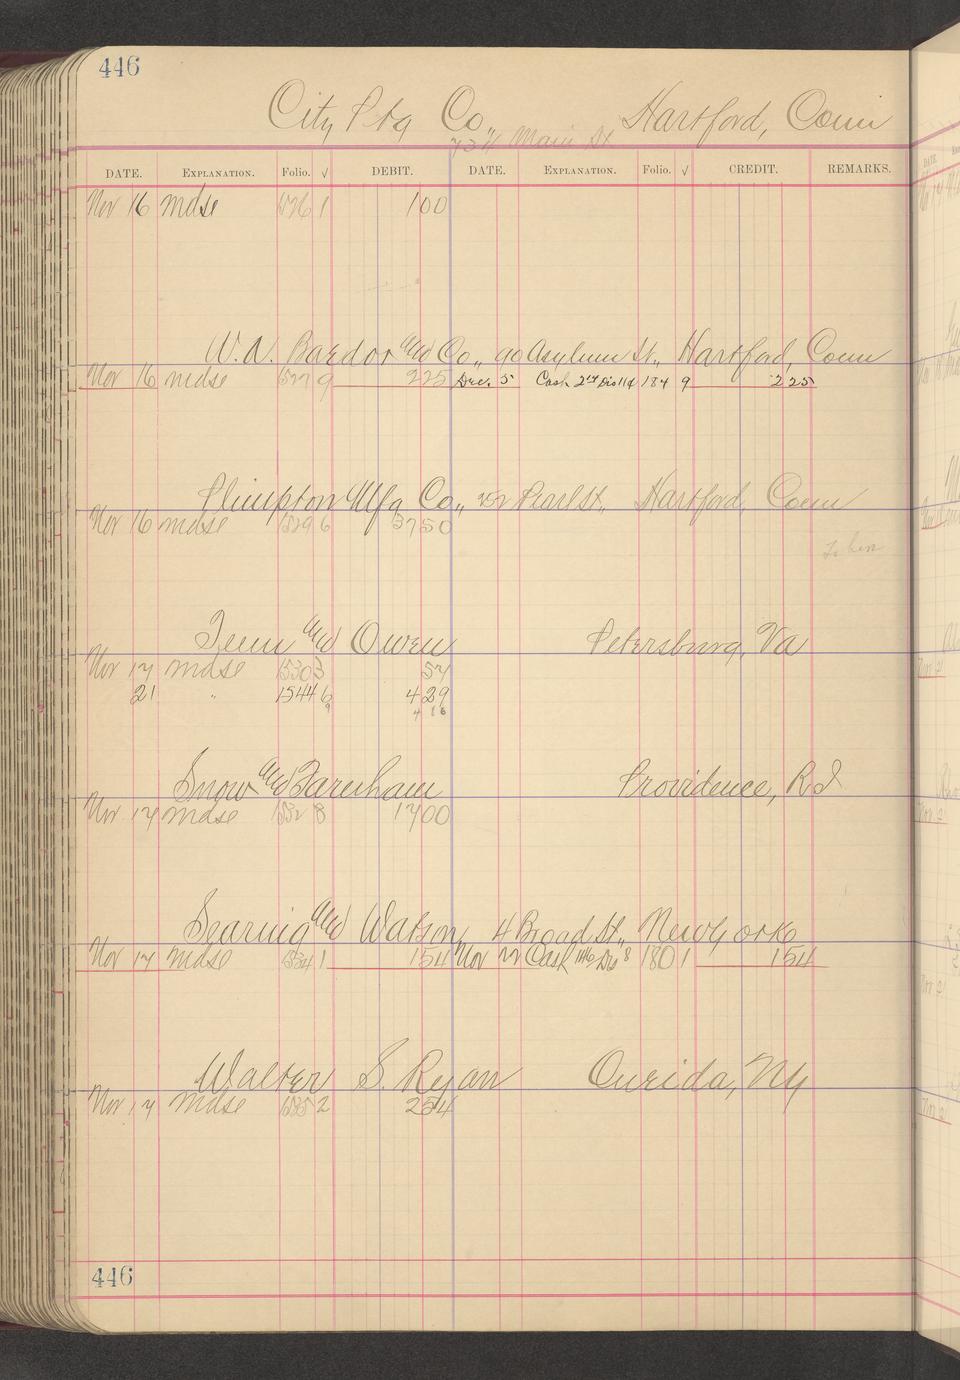 446
City Ptg Co., Hartford, Conn
734 Main St
DATE. EXPLANATION. Folio. √ DEBIT. DATE. EXPLANATION. Folio. √ CREDIT. REMARKS.
Nov 16 mdse 1526 1 100
W. N. Bardor and Co., 90 Asylum St., Hartford, Conn
Nov 16 mdse 1527 9 225 Dec. 5 Cash 184 9 2 25
Plimpton Mfg Co., 252 Pearl St., Hartford, Conn
Nov 16 mdse 1529 6 3750
and Owen Petersburg, Va
Nov 17 mdse 1530 3 57
21 " 1544 6 4 29
9 4 86
Snow and Farnham Providence, R I
Nov 17 mdse 1532 8 1700
Searing and Watson, 4 Broad St., New York
Nov 17 mdse 1534 1 154 Nov 22 Cash 1146 Dis 8 180 1 154
Walter S. Ryan Oneida, Ny
Nov 17 mdse 1535 2 254
446